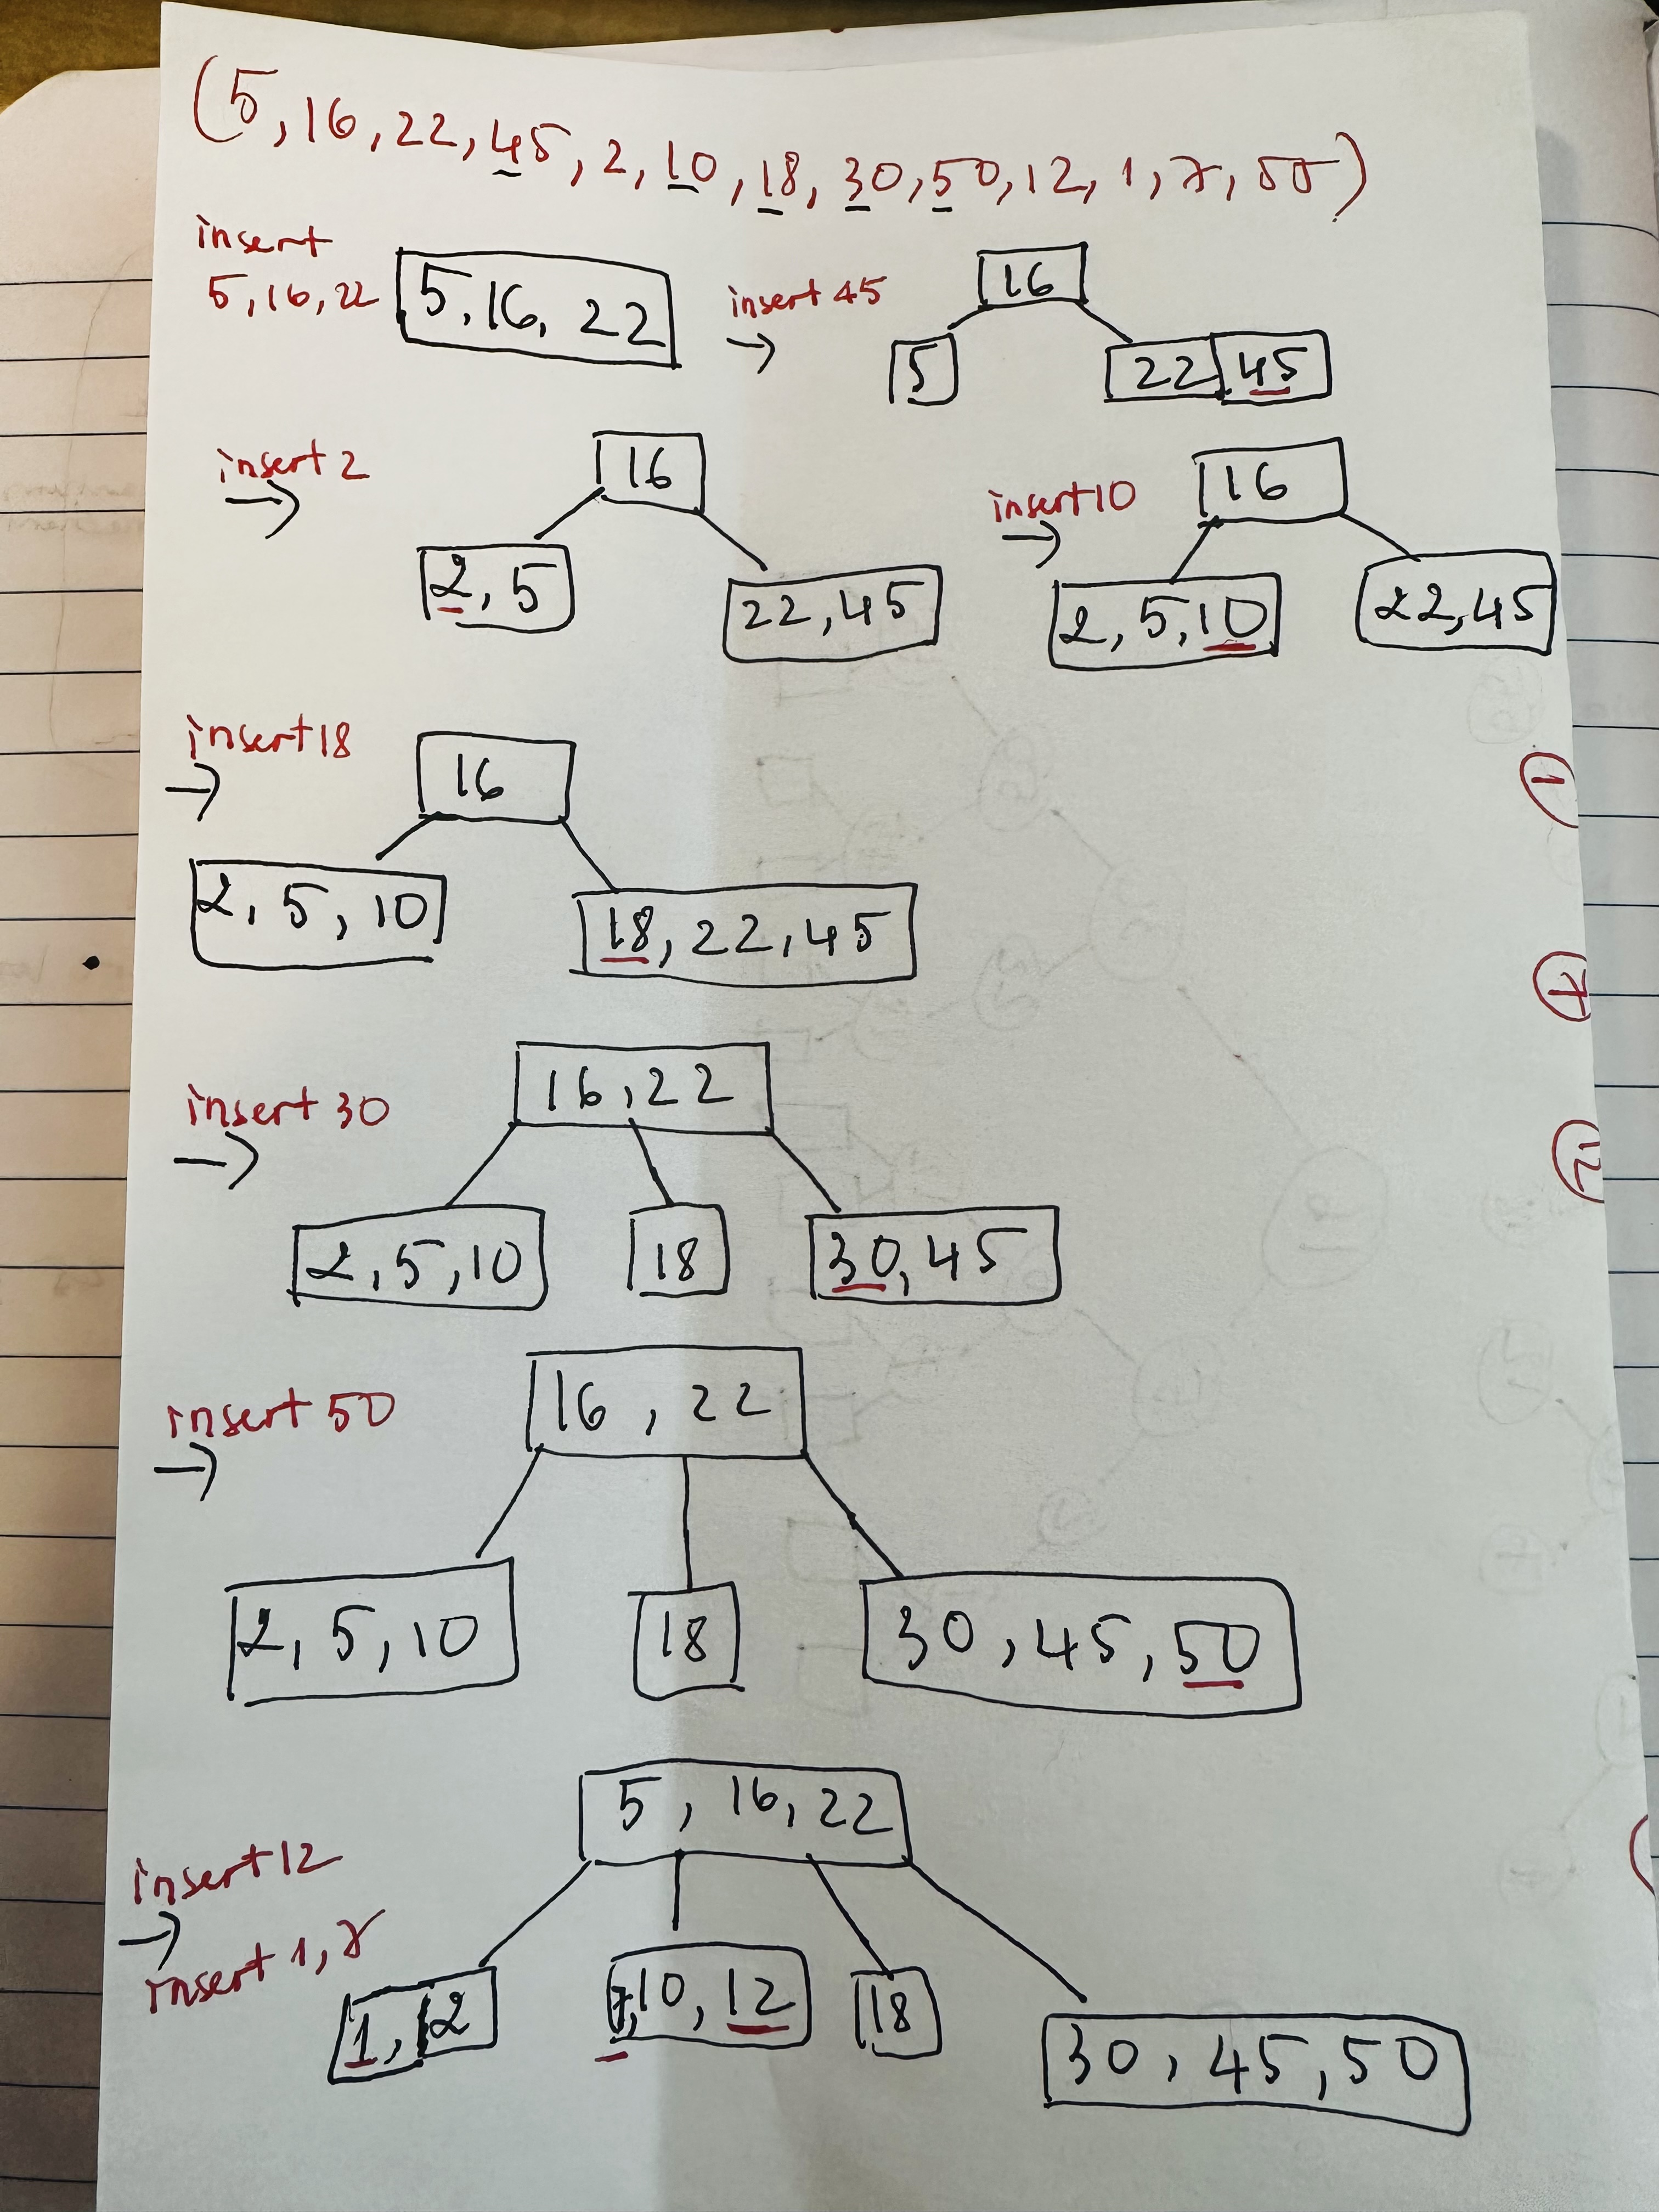 (5,16,22,45,2,10,18,30,50,12,1,7,55)
insert
5,16,22
5,16,22
insert 45
→
16
5
22 45
insert 2
→
16
2,5
22,45
insert 10
→
16
2,5,10
22,45
insert 18
→
16
2,5,10
18,22,45
insert 30
→
16,22
2,5,10
18
30,45
insert 50
→
16,22
2,5,10
18
30,45,50
insert 12
→
insert 1,7
5,16,22
1,2
7,10,12
18
30,45,50
1
7
12